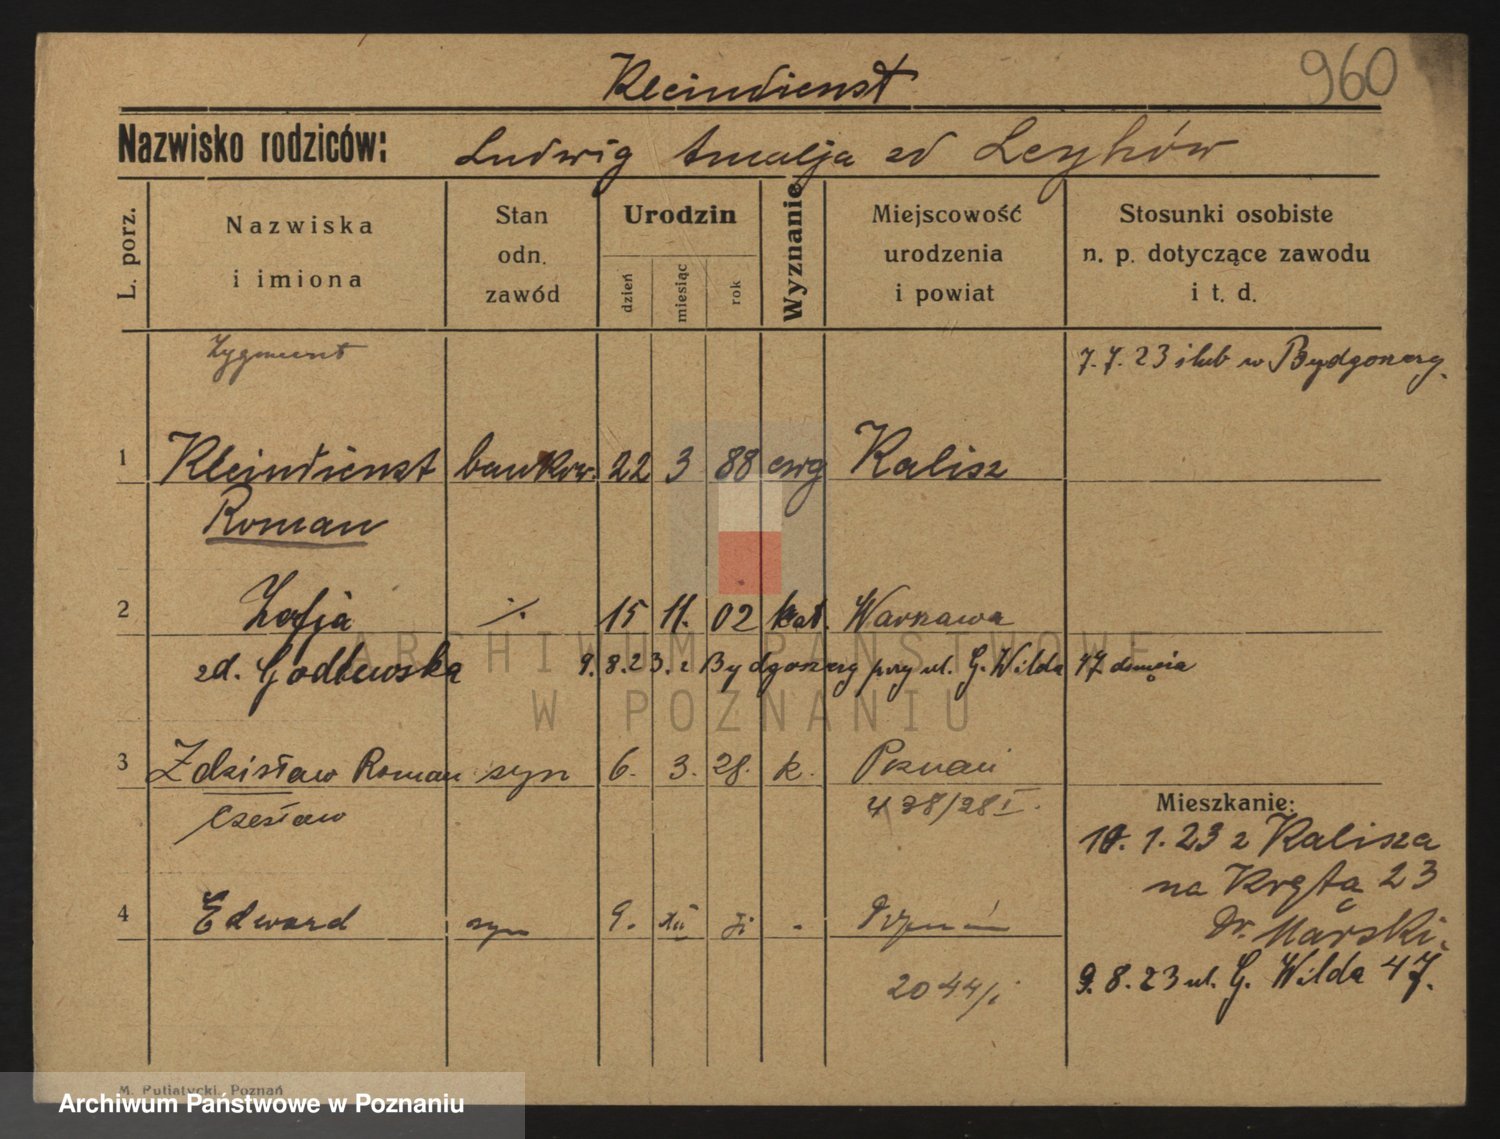 960
Kleindienst
Nazwisko rodziców: Ludwig Amalja zd Leyhów
L. porz.
Nazwiska i imiona
Stan odn. zawód
Urodzin
dzień
miesiąc
rok
Wyznanie
Miejscowość urodzenia i powiat
Stosunki osobiste n. p. dotyczące zawodu i t. d.
Zygmunt
7. 7. 23 ślub w Bydgoszczy.
1 Kleindienst bankow. 22 3 88 ewg Kalisz
Roman
2 Zofja ./. 15 11. 02 kat. Warszawa
zd. Godlewska 9. 8. 23. z Bydgoszczy przy ul. G. Wilda 47 do męża
3 Zdzisław Roman syn 6. 3. 28. k. Poznań
Czesław 438/28 I.
4 Edward syn 9. XII
2044/
Mieszkanie:
10. 1. 23 z Kalisza
na Krętą 23
Dr. Marski.
9. 8. 23 ul. G. Wilda 47.
M. Putiatycki, Poznań
ARCHIWUM PAŃSTWOWE
W POZNANIU
Archiwum Państwowe w Poznaniu